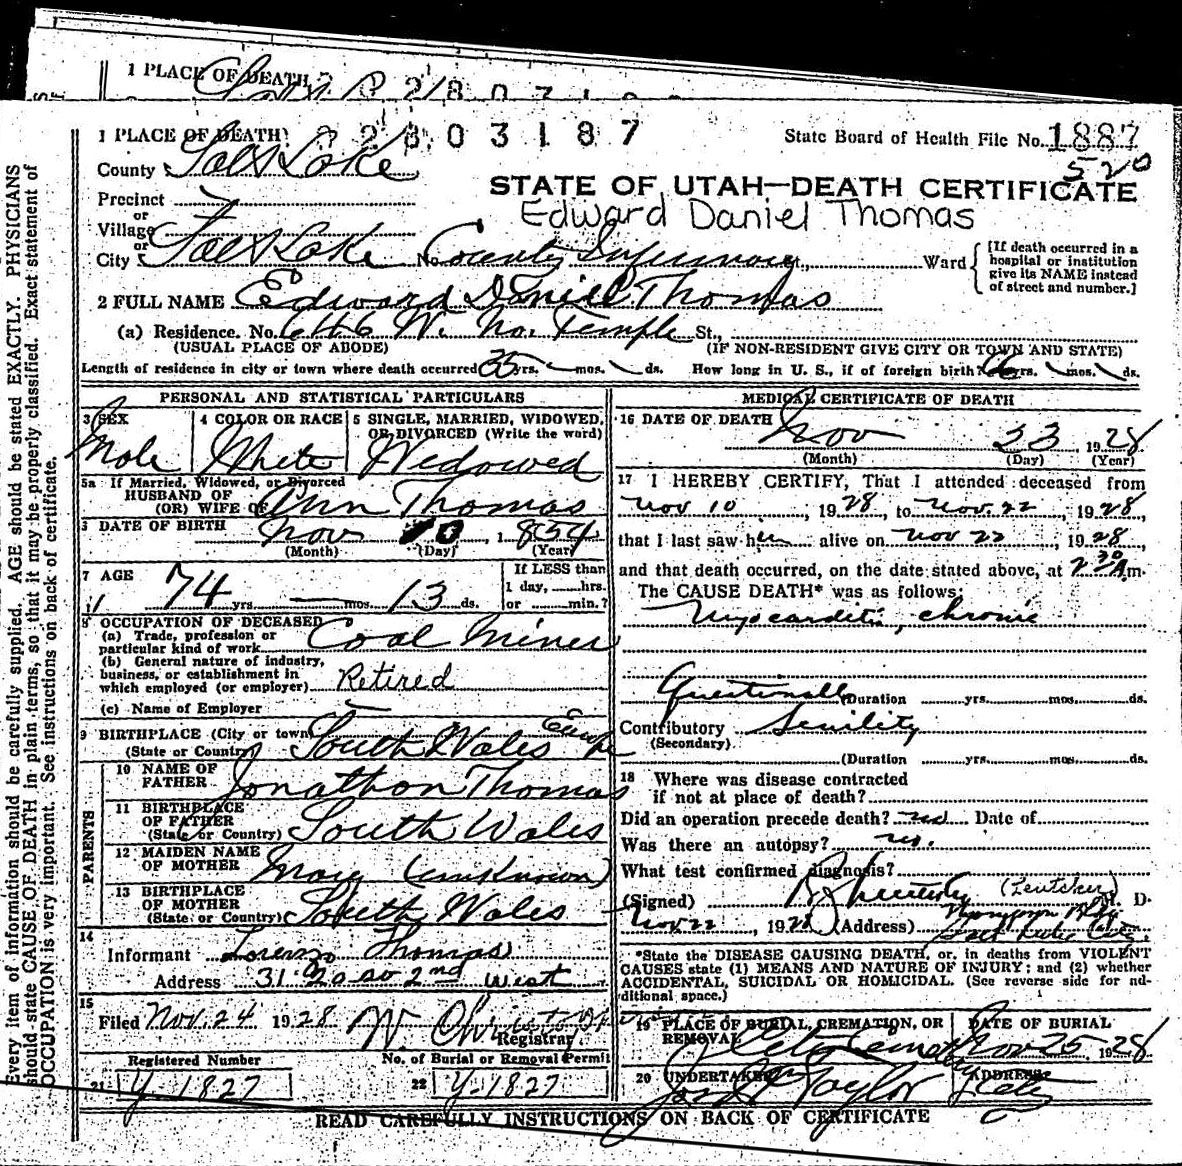 1 PLACE OF DEATH
1 PLACE OF DEATH 82803187 State Board of Health File No. 1887
520
County Salt Lake
STATE OF UTAH—DEATH CERTIFICATE
Precinct
Edward Daniel Thomas
or
Village
or
City Salt Lake No. County Infirmary, Ward
[If death occurred in a
hospital or institution
give its NAME instead
of street and number.]
2 FULL NAME Edward Daniel Thomas
(a) Residence. No. 646 W. No. Temple St.,
(USUAL PLACE OF ABODE) (IF NON-RESIDENT GIVE CITY OR TOWN AND STATE)
Length of residence in city or town where death occurred 35 yrs. mos. ds. How long in U. S., if of foreign birth? yrs. mos. ds.
PERSONAL AND STATISTICAL PARTICULARS
3 SEX
Male
4 COLOR OR RACE
White
5 SINGLE, MARRIED, WIDOWED,
OR DIVORCED (Write the word)
Widowed
5a If Married, Widowed, or Divorced
HUSBAND OF
(OR) WIFE OF Ann Thomas
DATE OF BIRTH Nov 10, 1854
(Month) (Day) (Year)
7 AGE
74 yrs. — mos. 13 ds.
If LESS than
1 day, hrs.
or min.?
8 OCCUPATION OF DECEASED
(a) Trade, profession or
particular kind of work Coal Miner
(b) General nature of industry,
business, or establishment in
which employed (or employer) Retired
(c) Name of Employer —
9 BIRTHPLACE (City or town)
(State or Country) South Wales Europe
PARENTS
10 NAME OF
FATHER Jonathon Thomas
11 BIRTHPLACE
OF FATHER
(State or Country) South Wales
12 MAIDEN NAME
OF MOTHER Mary (unknown)
13 BIRTHPLACE
OF MOTHER
(State or Country) South Wales
14
Informant Lorenzo Thomas
Address 31 2nd West
15
Filed Nov. 24 1928
Registrar.
Registered Number No. of Burial or Removal Permit
21 Y-1827 22 Y-1827
MEDICAL CERTIFICATE OF DEATH
16 DATE OF DEATH
Nov 23 1928
(Month) (Day) (Year)
17 I HEREBY CERTIFY, That I attended deceased from
Nov 10, 1928, to Nov. 22, 1928,
that I last saw him alive on Nov 22, 1928,
and that death occurred, on the date stated above, at 2 30 A.m.
The CAUSE DEATH* was as follows:
Myocarditis, chronic
Questionable (Duration yrs. mos. ds.
Contributory Senility
(Secondary)
(Duration yrs. mos. ds.
18 Where was disease contracted
if not at place of death?
Did an operation precede death? no Date of
Was there an autopsy? no.
What test confirmed diagnosis?
(Signed) M. D.
Nov 22, 1928 (Address)
Salt Lake City.
*State the DISEASE CAUSING DEATH, or, in deaths from VIOLENT
CAUSES state (1) MEANS AND NATURE OF INJURY; and (2) whether
ACCIDENTAL, SUICIDAL OR HOMICIDAL. (See reverse side for additional
space.)
19 PLACE OF BURIAL, CREMATION, OR
REMOVAL City Cemetery
DATE OF BURIAL
Nov 25 1928
20 UNDERTAKER
Taylor
ADDRESS
City
READ CAREFULLY INSTRUCTIONS ON BACK OF CERTIFICATE
Every item of information should be carefully supplied. AGE should be stated EXACTLY. PHYSICIANS
should state CAUSE OF DEATH in plain terms, so that it may be properly classified. Exact statement of
OCCUPATION is very important. See instructions on back of certificate.